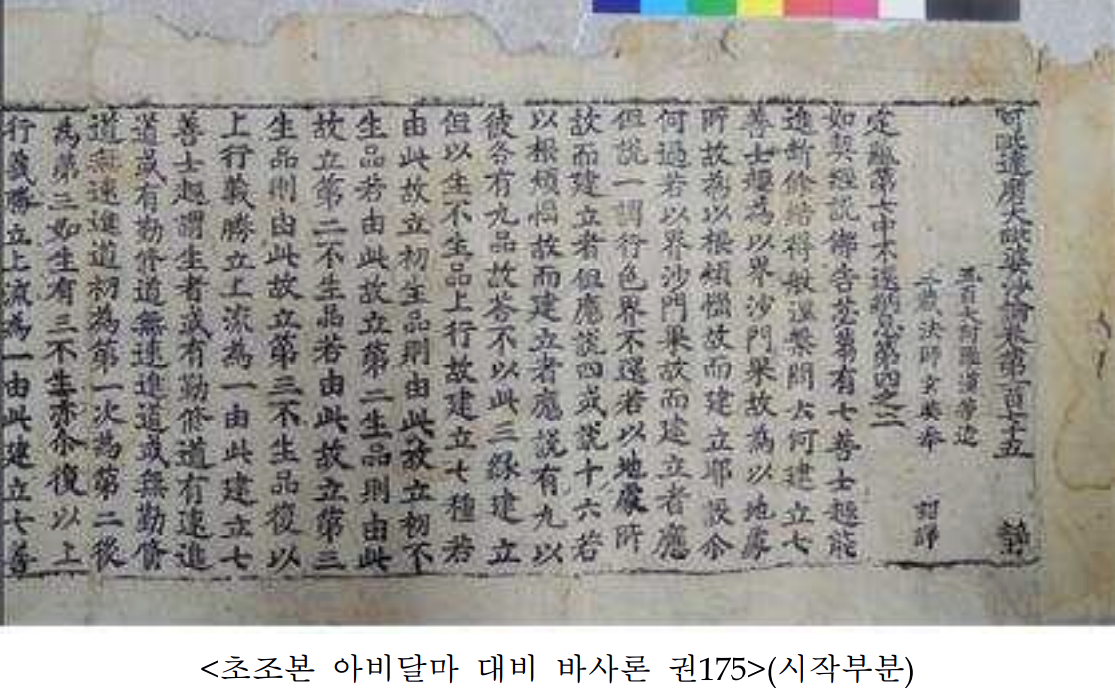 阿毗達磨大毗婆沙論卷第一百七十五
五百大阿羅漢等造
三藏法師玄奘奉 詔譯
定蘊第七中不還納息第四之二
如契經說佛告苾芻有七善士趣能
進斷餘結得般涅槃問云何建立七
善士趣為以界沙門果故為以地處
所故為以根煩惱故而建立耶設尒
何過若以界沙門果故而建立者應
但說一謂行色界不還若以地處所
故而建立者但應說四或說十六若
以根煩惱故而建立者應說有九以
彼各有九品故答不以此三緣建立
但以生不生品上行故建立七種若
由此故立初生品則由此故立初不
生品若由此故立第二生品則由此
故立第二不生品若由此故立第三
生品則由此故立第三不生品復以
上行義勝立上流為一由此建立七
善士趣謂生者或有勤修道有速進
道或有勤修道無速進道或無勤修
道無速進道初為第一次為第二後
為第三如生有三不生亦尒復以上
行義勝立上流為一由此建立七善
<초조본 아비달마 대비 바사론 권175>(시작부분)